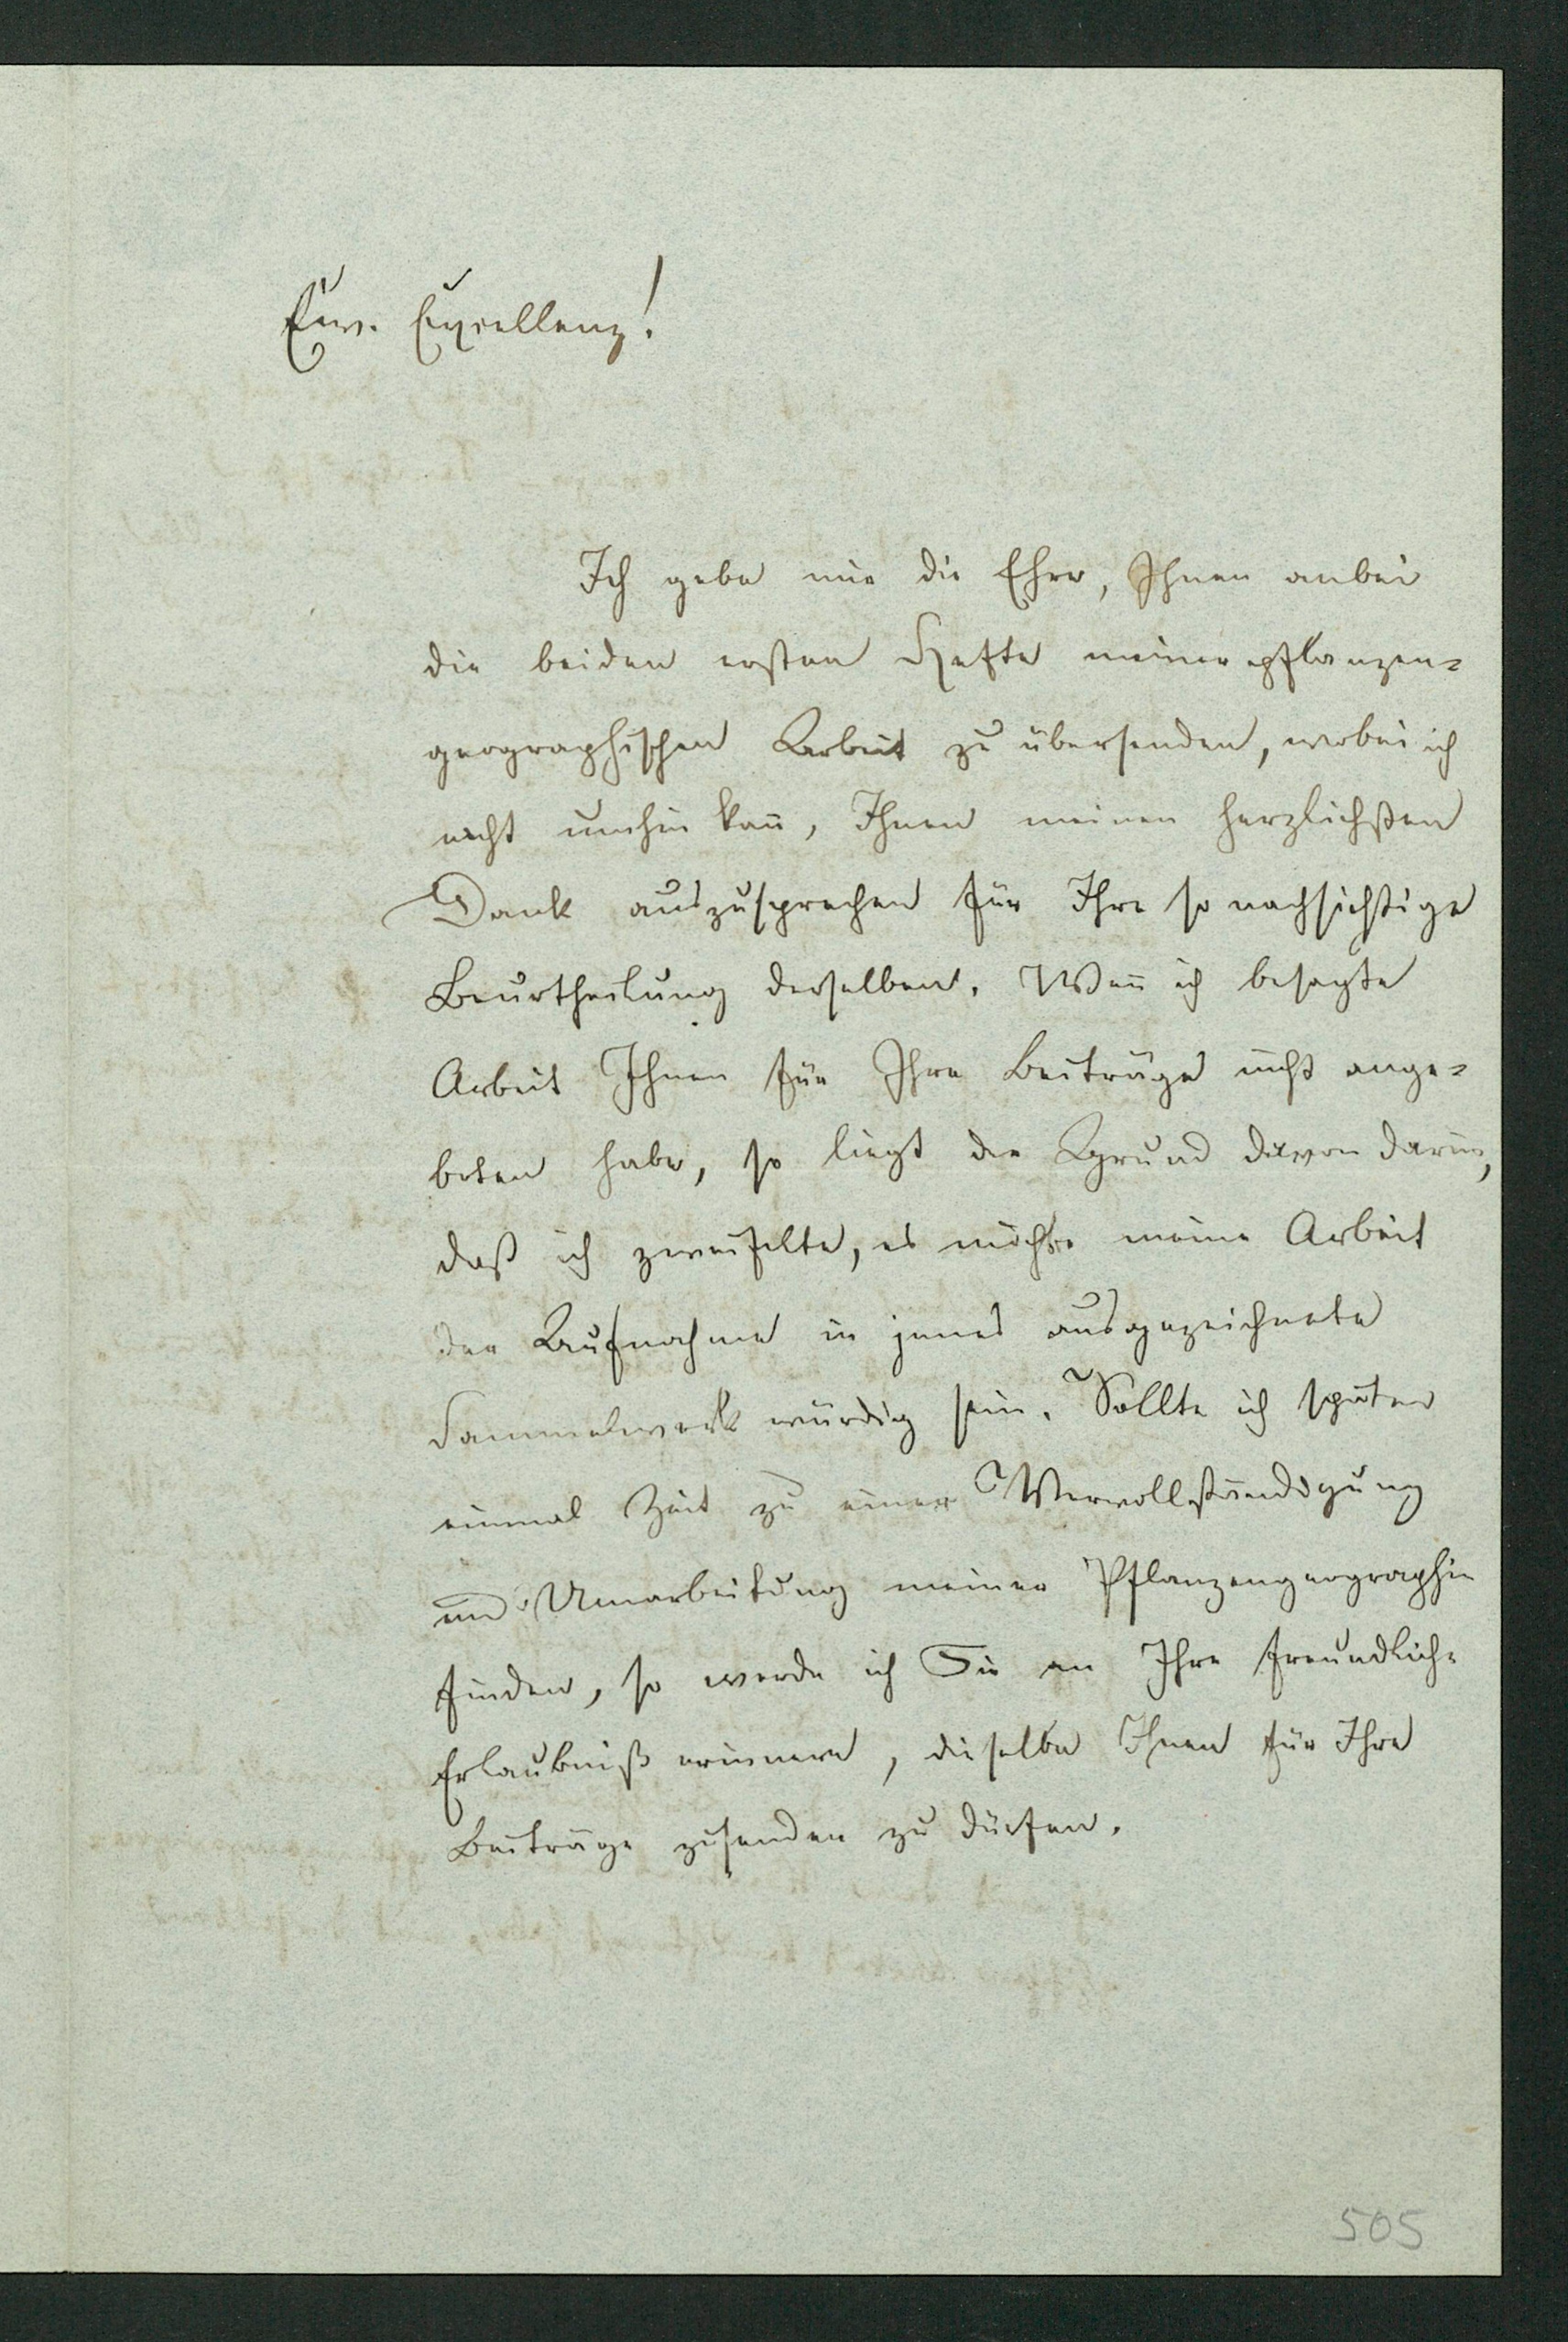 Euer. Excellenz!
Ich gebe mir die Ehre, Ihnen anbei
die beiden ersten Hefte meiner pflanzen-
geographischen Arbeit zu übersenden, wobei ich
nicht umhin kan̄, Ihnen meinen herzlichsten
Dank auszusprechen für Ihre so nachsichtige
Beurtheilung derselben. Wen̄ ich besagte
Arbeit Ihnen für Ihre Beiträge nicht ange-
boten habe, so liegt der Grund davon darin,
daß ich zweifelte, es möchte meine Arbeit
der Aufnahme in jenes ausgezeichnete
Sammelwerk würdig sein. Sollte ich später
einmal Zeit zu einer Vervollständigung
und Umarbeitung meiner Pflanzengeographie
finden, so werde ich Sie an Ihre freundliche
Erlaubniß erinnern, dieselbe Ihnen für Ihre
Beiträge zusenden zu dürfen.
505